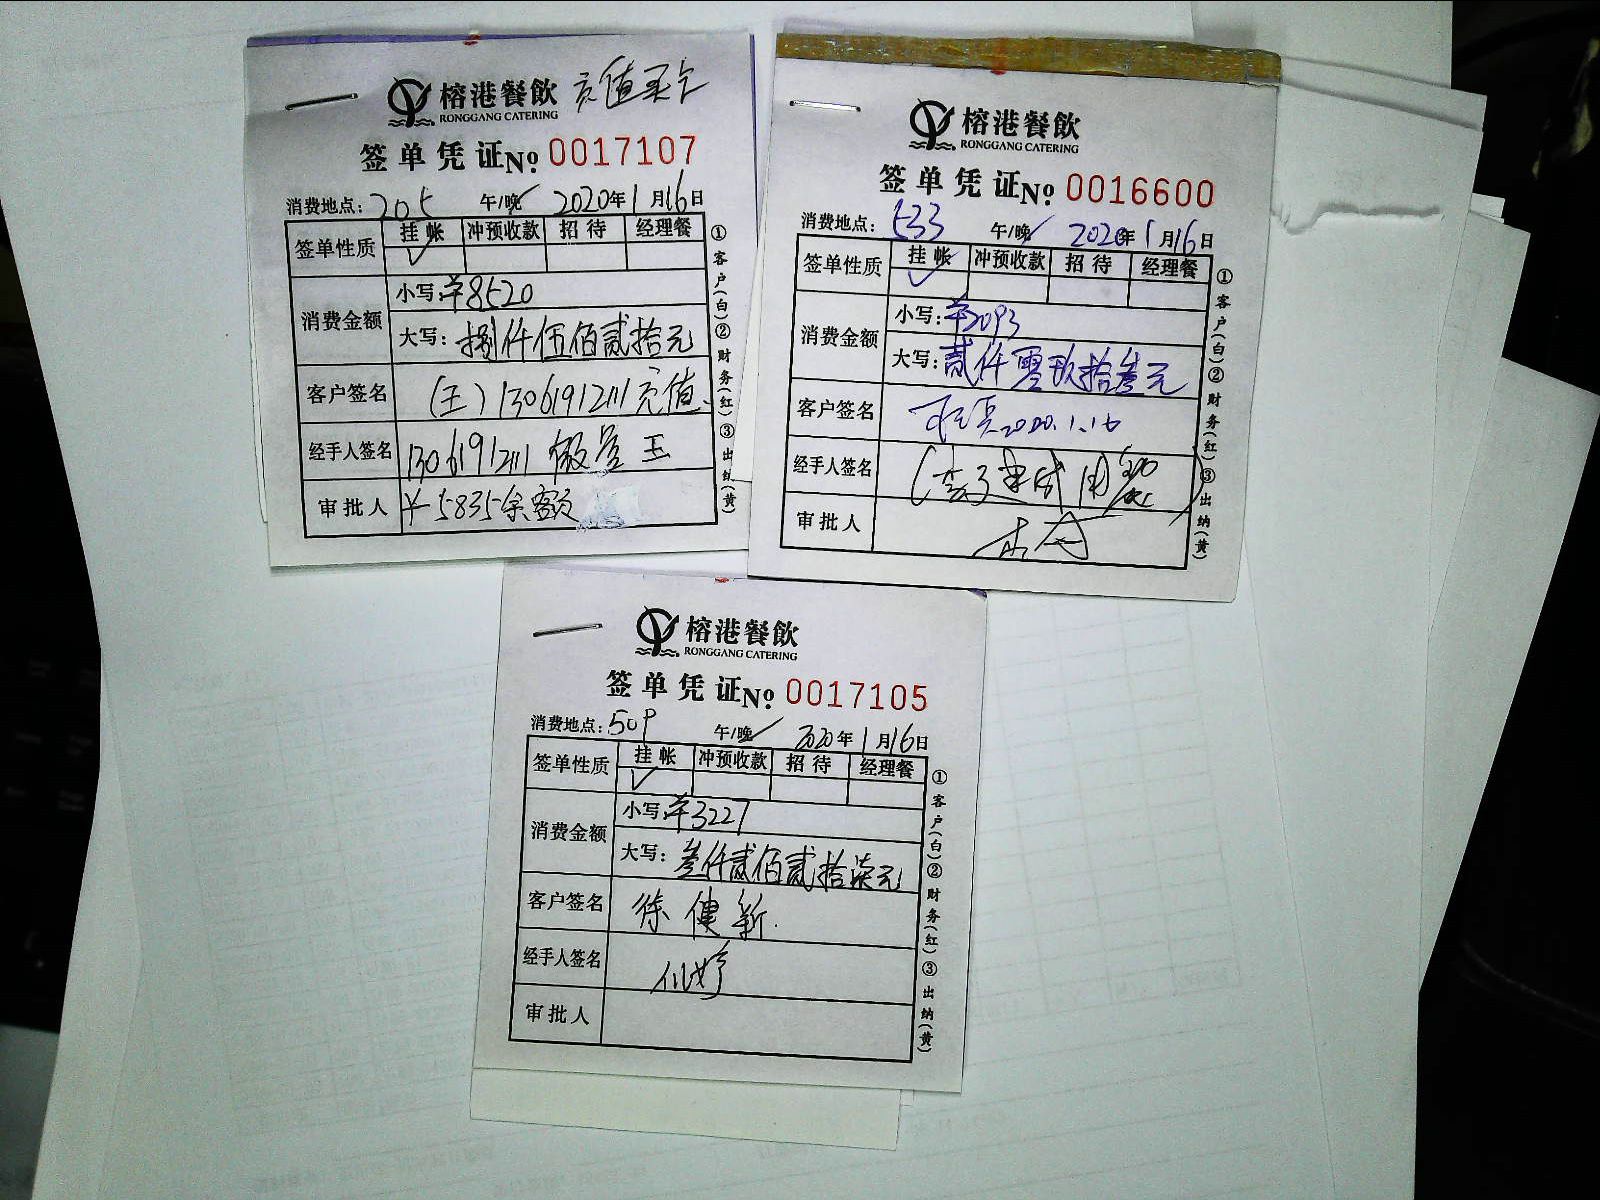 榕港餐飲 充值买卡
RONGGANG CATERING
签单凭证 No. 0017107
消费地点: 205 午/晚✓ 2020年1月16日
签单性质 挂帐 冲预收款 招待 经理餐
✓
消费金额
小写: ¥8520
大写: 捌仟伍佰贰拾元
客户签名 (王) 13061912111 充值
经手人签名 13061912111 王
审批人 ¥5835余额
①客户(白)②财务(红)③出纳(黄)
榕港餐飲
RONGGANG CATERING
签单凭证 No. 0016600
消费地点: 533 午/晚✓ 2020年1月16日
签单性质 挂帐 冲预收款 招待 经理餐
✓
消费金额
小写: ¥2093
大写: 贰仟零玖拾叁元
客户签名 2020.1.16
经手人签名
审批人
①客户(白)②财务(红)③出纳(黄)
榕港餐飲
RONGGANG CATERING
签单凭证 No. 0017105
消费地点: 509 午/晚✓ 2020年1月16日
签单性质 挂帐 冲预收款 招待 经理餐
✓
消费金额
小写: ¥3227
大写: 叁仟贰佰贰拾柒元
客户签名 徐健新
经手人签名
审批人
①客户(白)②财务(红)③出纳(黄)